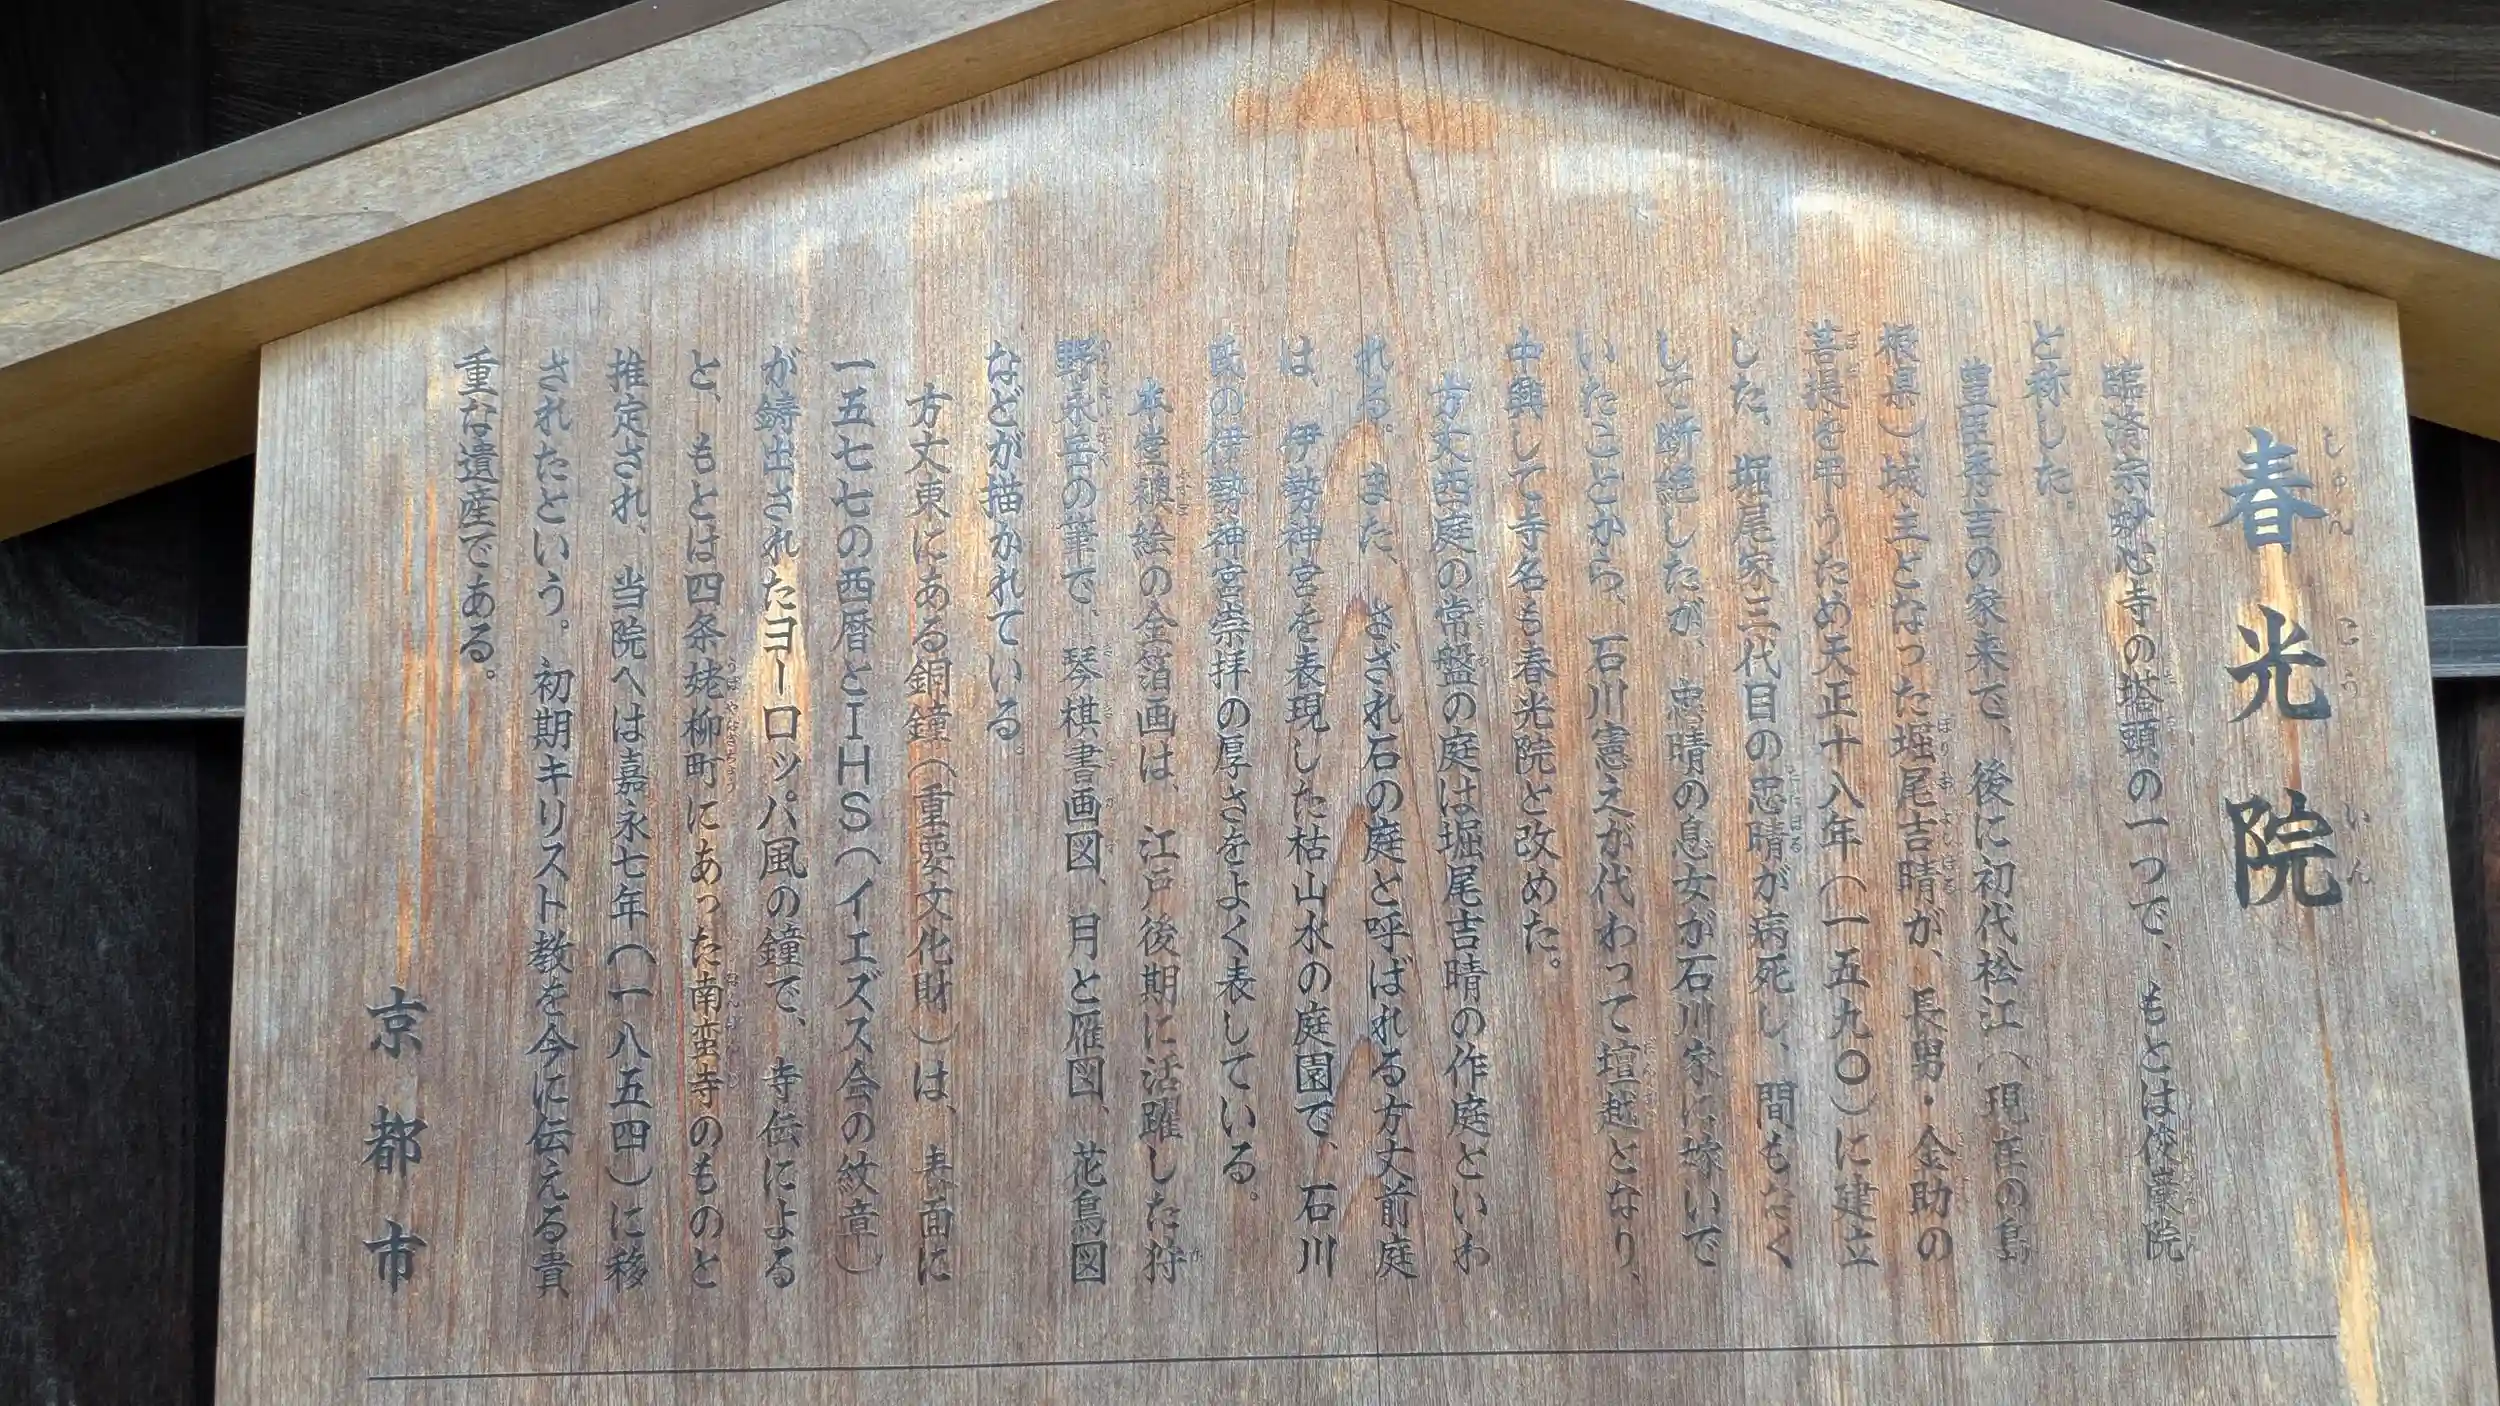 春光院
臨済宗妙心寺の塔頭の一つで、もとは俊巌院
と称した。
豊臣秀吉の家来で、後に初代松江(現在の島
根県)城主となった堀尾吉晴が、長男・金助の
菩提を弔うため天正十八年(一五九〇)に建立
した。堀尾家三代目の忠晴が病死し、間もなく
して断絶したが、忠晴の息女が石川家に嫁いで
いたことから、石川憲之が代わって壇越となり、
中興して寺名も春光院と改めた。
方丈西庭の常盤の庭は堀尾吉晴の作庭といわ
れる。また、さざれ石の庭と呼ばれる方丈前庭
は、伊勢神宮を表現した枯山水の庭園で、石川
氏の伊勢神宮崇拝の厚さをよく表している。
本堂襖絵の金箔画は、江戸後期に活躍した狩
野永岳の筆で、琴棋書画図、月と雁図、花鳥図
などが描かれている。
方丈東にある銅鐘(重要文化財)は、表面に
一五七七の西暦とIHS(イエズス会の紋章)
が鋳出されたヨーロッパ風の鐘で、寺伝による
と、もとは四条姥柳町にあった南蛮寺のものと
推定され、当院へは嘉永七年(一八五四)に移
されたという。初期キリスト教を今に伝える貴
重な遺産である。
京都市